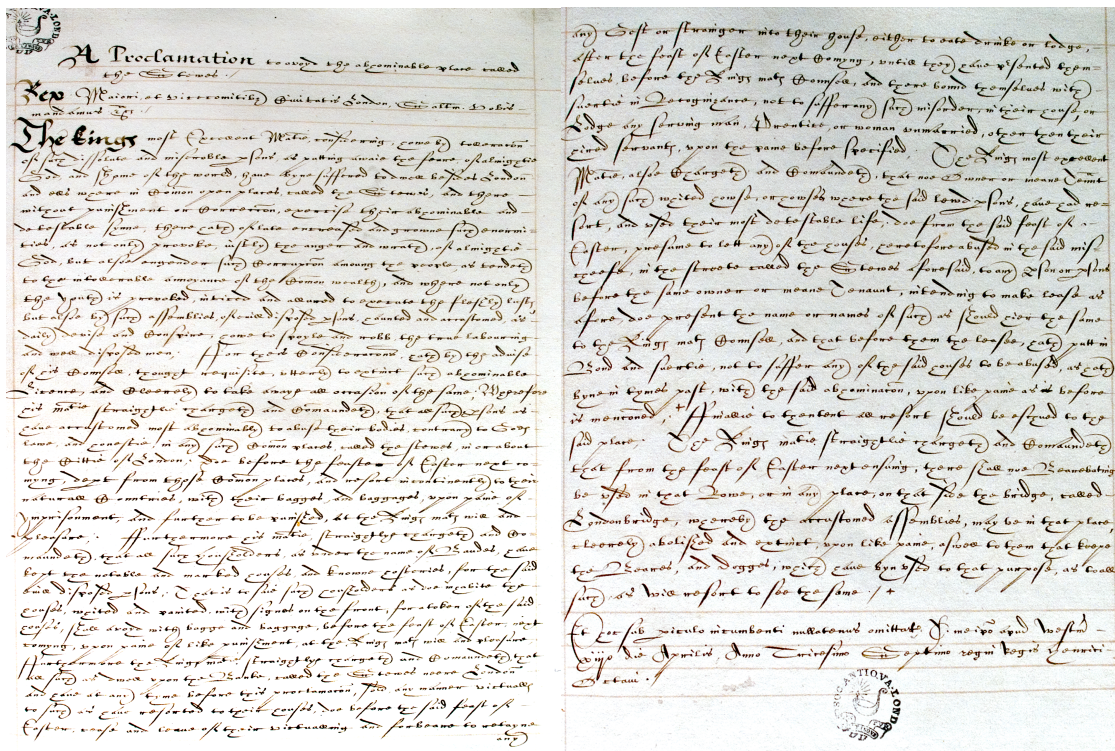 A Proclamation to avoyd the abominable place called
the Stewes
Rex Maiori et vicecomitibz Civitatis London, Saltm. Vobis
mandamus &c
The kings most Excellent Matie, considering, howe by tolleracon
of such dissolute and miserable psons, as putting awaie the feare of almightie
God, and shame of the world, have byne suffered to dwell besides London
and els where in Comon open places, called the Stewes, and there
without punishment or Correccon, exercise their abominable and
detestable Sinne, there hath of late encreased and growne such enormi-
ties, as not only provoke, iustly the anger and wrath, of almightie
God, but alsoe engender such Corrupcon among the people, as tendeth
to the intollerable annoyance of the Comon wealth, and where not only
the youth is provoked, inticed and allured to execute the fleshly lusts
but alsoe by such assemblies, of evill disposed psons, haunted and accustomed, as
daily devise and Conspire, howe to spoyle and robb, the true labouring
and well disposed men; For theis Consideracons, hath by the advise
of his Counsell, thought requisite, utterly to extinct such abominable
Licence, and Cleerely to take awaye all occasion of the same; Wherefore
his matie straightlie chargeth and Comaundeth, that all such psons as
have accustomed most abominably to abuse their bodies, contrary to Gods
lawe, and honestie, in any such Comon places, called the stewes, in or about
the Cittie of London; doe before the feaste of Easter next co-
myng, dept from those Comon places, and resort incontinently to their
naturall Countries, with their bagges, and baggages, upon paine of
Imprisonment, and further to be punished, at the kings mats will and
pleasure. Furthermore his matie, straightly chargeth and Co-
maundeth, that all such housholders, as under the name of Baudes, have
kept the notable and marked houses, and knowne hosteries, for the said
evill disposed psons; That is to saie such housholders as doe inhabite the
houses, whited and painted, with signes on the front, for a token of the said
houses, shall avoyd with bagge and baggage, before the feast of Easter, next
comyng, upon paine of like punishment, at the kings mats will and pleasure.
Furthermore the kings matie straightly chargeth and Comaundeth that
all such as dwell upon the Banke, called the Stewes neere London
and have at any tyme before this proclamacon, sold any maner victualls
to such as have resorted to their houses, doe before the said feast of
Easter, cease and leave of their victualling and forbeare to retayne
any
any Gest or stranger into their house, either to eate drinke or lodge,
after the feast of Easter next Comyng, untill they have psented them-
selves before the kings mats Counsell, and there bound themselves with
suertie in Recognizance, not to suffer any such misorder, in their house, or
lodge any serving man, Prentice, or woman unmarried, other then their
hired servants, upon the paine before specified. The kings most excellent
Matie, alsoe Chargeth and Comaundeth, that noe Owner or meane Tennt
of any such whited house, or howses where the said lewd psons, have had re-
sort, and used their most detestable life, doe from the said feast of
Easter, presume to lett any of the houses, heretofore abused in the said mis-
cheefe, in the streete called the Stewes aforesaid, to any pson or psons
before the same owner or meane Tenaunt, intending to make lease as
afore, doe present the name or names of such as should hier the same
to the kings mats Counsell, and that before them the leasee, hath putt in
Bond and suertie, not to suffer any of the said houses to be abused, as hath
byne in tymes past, with the said abominacon, upon like paine as is before
is menconed. Finallie to thentent all resort should be eschued to the
said place; The kings matie, straightlie chargeth and Comaundeth
that from the feast of Easter next ensuing, there shall noe Bearebaiting
be used in that Rowe, or in any place, on that side the bridge, called
Londonbridge, whereby the accustomed assemblies, may be in that place
cleerely abolished and extinct, upon like paine, aswell to them that keepe
the Beares, and dogges, which have byn used to that purpose, as to all
such, as will resort to see the same.
Et hoc sub piculo incumbenti nullatenus omittatis. T. me ipo apud Westm
xiijo die Aprilis, Anno Tricesimo Septimo regni Regis Henrici
Octavi.
SOC·ANTIQVA·LOND